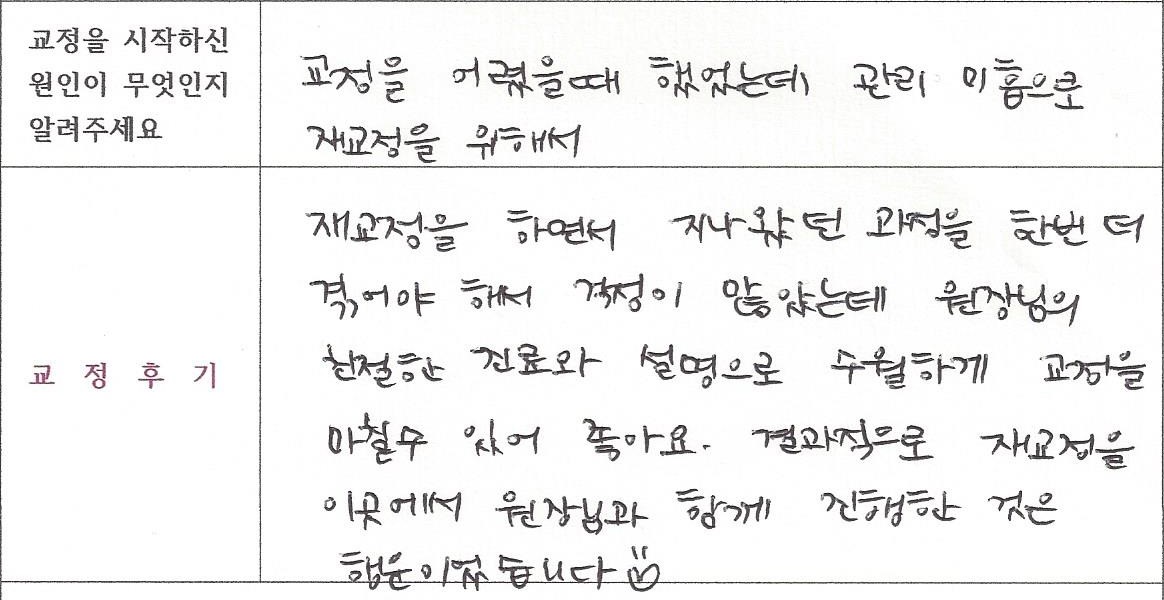 교정을 시작하신
원인이 무엇인지
알려주세요
교정을 어렸을때 했었는데, 관리 미흡으로
재교정을 위해서
교정후기
재교정을 하면서 지나왔던 과정을 한번 더
겪어야 해서 걱정이 많았는데 원장님의
친절한 진료와 설명으로 수월하게 교정을
마칠수 있어 좋아요. 결과적으로 재교정을
이곳에서 원장님과 함께 진행한 것은
행운이었습니다